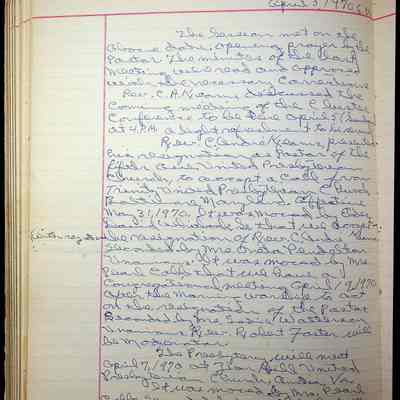 April 3, 1970
The Session met on the
above date, opening prayer by the
Pastor. The minutes of the last
Meeting were read and approved
with the necessary Corrections
Rev. C. A. Kearns discussed the
Coming meeting of the Cluster
Conference to be held April 5 (Sunday)
at 4 P.M. a light refreshment to be served
Rev. Clentre Kearns presented
his resignation as Pastor of the
Fifth Ave United Presbyterian
Church to accept a Call from
Trinity United Presbyterian Church
Baltimore Maryland. Effective
May 31, 1970. It was moved by Elder
that we accept
the resignation of Rev. Kearns
Seconded by Mrs. Pendleton
Unanimous. It was moved by Mrs.
Pearl Cobb that we have a
Congregational meeting April 19, 1970
After the Morning worship to act
on the resignation of the Pastor
Seconded by Mrs. Sadie Watterson
Unanimous. Rev. Robert Foster will
be Moderator.
The Presbytery will meet
April 7, 1970 at Hill United
Presbyterian Church
It was moved by Mrs. Pearl